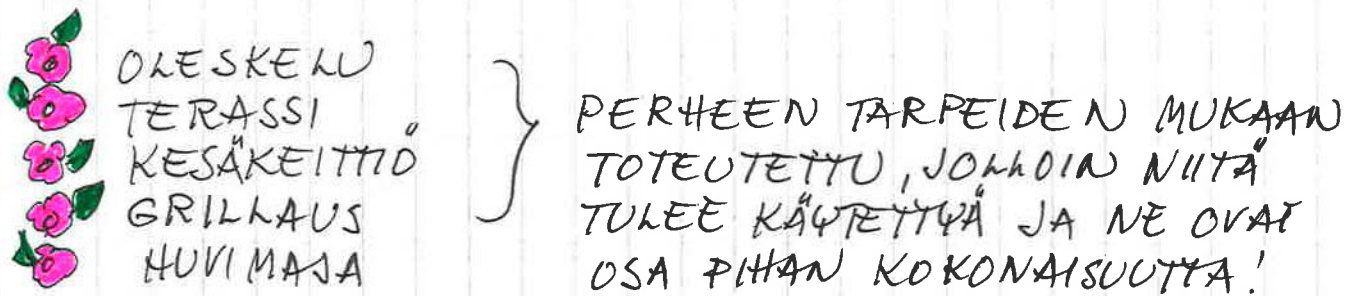 OLESKELU
TERASSI
KESÄKEITTIÖ
GRILLAUS
HUVIMAJA
PERHEEN TARPEIDEN MUKAAN
TOTEUTETTU, JOLLOIN NIITÄ
TULEE KÄYTETTYÄ JA NE OVAT
OSA PIHAN KOKONAISUUTTA!